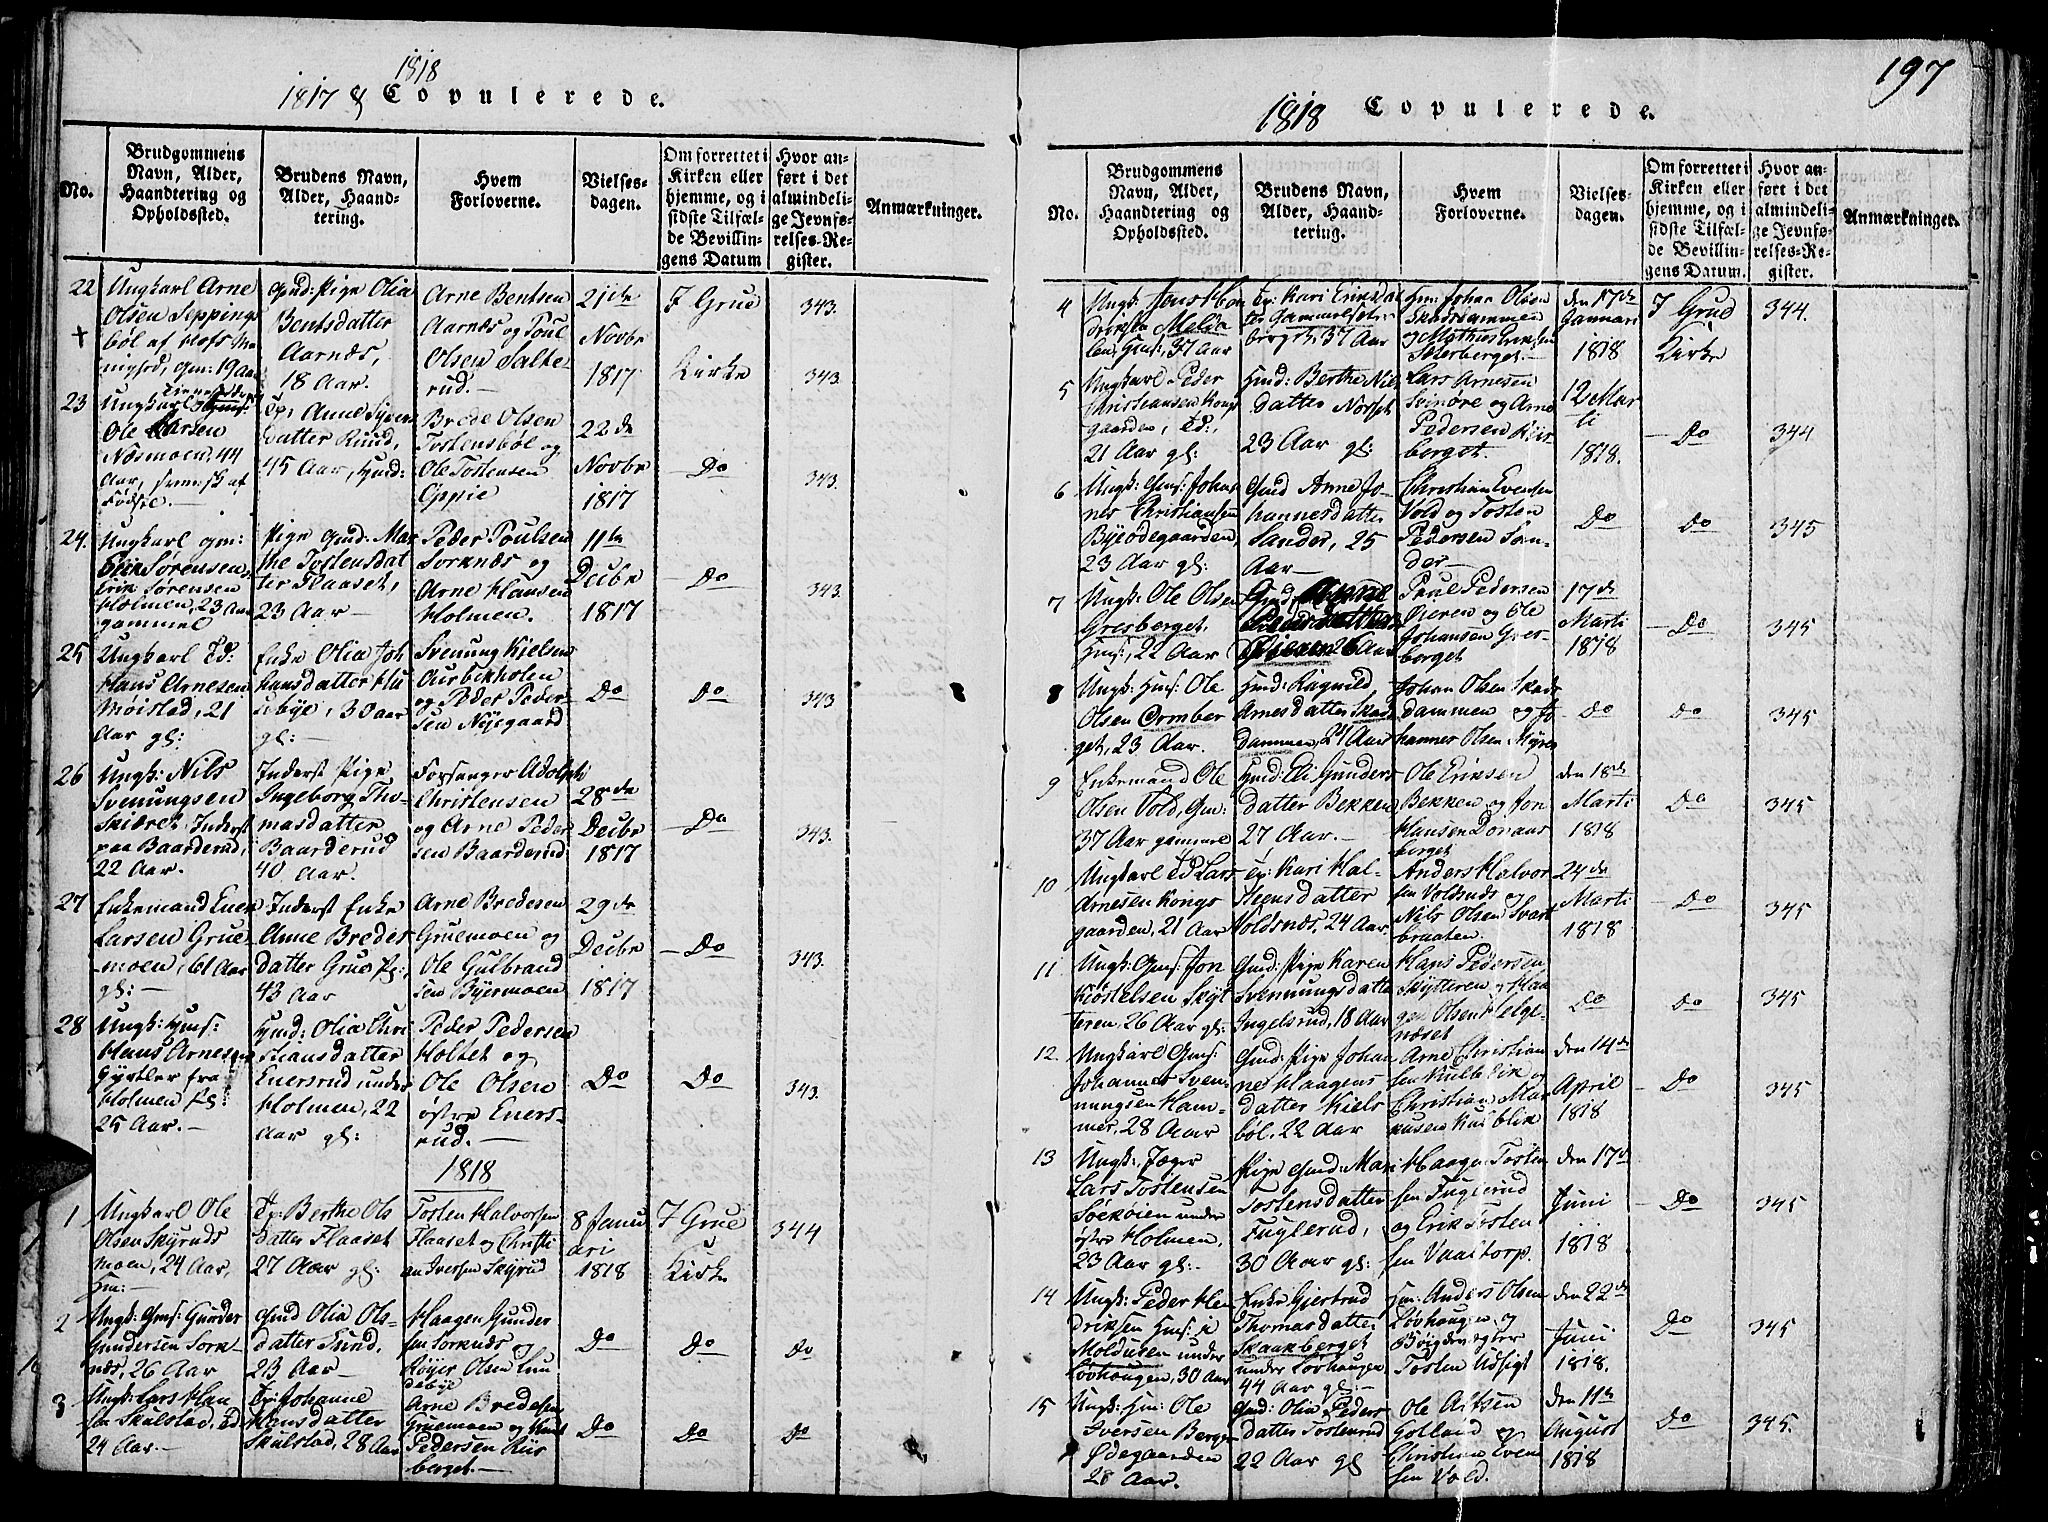 1818
1817 & Copulerede.
No.
Brudgommens
Navn, Alder,
Haandtering og
Opholdssted.
Brudens Navn,
Alder, Haand-
tering.
Hvem
Forloverne.
Vielses-
dagen.
Om forrettet i
Kirken eller
hjemme, og i
sidste Tilfæl-
de Bevillin-
gens Datum
Hvor an-
ført i det
almindeli-
ge Jevnfø-
relses-Re-
gister.
Anmærkninger.
22
Ungkarl Arne
Olsen Sepping
böl af Hofs
19 Aar
Gmd: Pige Olia
Bentsdatter
Aarnæs,
18 Aar.
Arne Bentsen
Aarnæs og Poul
Olsen Salte-
rud.
21de
Novbr
1817
I Grue
Kirke
343.
343.
23
Ungkarl
Ole Larsen
Næsmoen, 44
Aar, svensk af
Fødsel.
Anne Syvers
datter Ruud,
45 Aar, Huusd:
Brede Olsen
Tostensböl og
Ole Tostensen
Oppie
22de
Novbr
1817
Do
343.
24.
Ungkarl Gm:
Erik Sørensen,
Erik Sørensen
Holmen, 23 Aar
gammel
Pige Gmd: Mar
the Tostensdat
ter Flaaset,
23 Aar
Peder Poulsen
Sorknæs og
Arne Hansen
Holmen.
11te
Decbr
1817
Do
343.
25
Ungkarl Td:
Hans Arnesen
Moistad, 21
Aar gl:
Enke Olia Joh
hansdatter Hu
sebye, 30 aar
gl:
Svenung Kjelsen
Aurbekholen
og Peder Peder
sen Nyegaard
Do
Do
343
26
Ungk: Nils
Svenungsen
Skiæret, Inderst
paa Baarderud,
22 Aar.
Inderst Pige
Ingeborg Tho-
masdatter
Baarderud
40 Aar.
Forsanger Adolph
Christensen
og Arne Peder
sen Baarderud
28de
Decbr
1817
Do
343.
27
Enkemand Ener
Larsen Grue-
moen, 61 Aar
gl:
Inderst Enke
Anne Breder
datter Grues Pg:
43 Aar
Arne Bredesen
Gruemoen og
Ole Gulbrand
sen Byermoen
29de
Decbr
1817
Do
343.
28
Ungk: Hms:
Hans Arnesen
Gyrtler fra
Holmen Pg:
25 Aar.
Hmd: Olia Chri
stiansdatter
Enersrud under
Holmen, 22
Aar gl:
Peder Pedersen
Holtet og
Ole Olsen
østre Eners-
rud.
Do
Do
343.
1818
1
Ungkarl Ole
Olsen Skyruds
moen, 24 Aar,
Hm:
Tp: Berthe Ols
datter Flaaset
27 Aar gl:
Tosten Halvorsen
Flaaset og Christi
an Iversen Skyrud
8 Janu
ari
1818
I Grue
Kirke
344
2
Ungk: Gms: Gunder
Gundersen Sork
næs, 26 Aar
Gmd Olia Ols-
datter Lund,
23 Aar
Haagen Gunder
sen Sorknæs og
Røyer Olsen Lun
debye
Do
Do
Do
3
Ungk: Lars Han
sen Skulstad, Td
24 Aar.
Tp: Johanne
Hansdatter
Skulstad, 28 Aar
Arne Bredesen
Gruemoen og Knut
Pedersen Riis
berget.
Do
Do
Do
197
1818 Copulerede.
No.
Brudgommens
Navn, Alder,
Haandtering og
Opholdssted.
Brudens Navn,
Alder, Haand-
tering.
Hvem
Forloverne.
Vielses-
dagen.
Om forrettet i
Kirken eller
hjemme, og i
sidste Tilfæl-
de Bevillin-
gens Datum.
Hvor an-
ført i det
almindeli-
ge Jevnfø-
relses-Re-
gister.
Anmærkninger.
4
Ungk: Jens Hen
driksen Melda
len, Gms: 37 Aar
Tp: Kari Eriksdat
ter Gammelsæter
berget, 37 Aar
Hm: Johan Olsen
Skasdammen
og Mathias Eriksen
Sæterberget.
den 17de
Januari
1818
I Grue
Kirke
344.
5
Ungkarl Peder
Christiansen Kongs
gaarden, Td:,
21 Aar gl:
Hmd: Berthe Nils
datter Norset
23 Aar gl:
Lars Arnesen
Svinöre og Arne
Pedersen Riis-
berget.
12 Mar
ti
1818.
Do
344
6
Ungk: Gms: Johan
nes Christiansen
Byeödegaarden,
23 Aar gl:
Gmd Anne Jo-
hannesdatter
Sander, 25
Aar
Christian Evensen
Vold og Tosten
Pedersen San-
der
Do
Do
345
7
Ungk: Ole Olsen
Gresberget,
Hms:, 22 Aar
Gmd: Anne
26 Aar
Paul Pedersen
Öieren og Ole
Johansen Gres-
berget
17de
Marti
1818
Do
345
8
Ungk: Hms: Ole
Olsen Ormber
get, 23 Aar.
Hmd: Ragnild
Arnesdatter Skas
dammen, 21 Aar
Johan Olsen Skas
dammen og Jo
hannes Olsen Myren
Do
Do
345
9
Enkemand Ole
Olsen Vold, Gm:
37 Aar gammel
Hmd: Eli Gunders
datter Bekken,
27 Aar.
Ole Eriksen
Bekken og Jon
Hansen Donaus
berget
den 18de
Marti
1818
Do
345
10
Ungkarl Td Lars
Arnesen Kongs
gaarden, 21 Aar
Tp: Kari Hal-
steensdatter
Voldsnæs, 24 Aar
Anders Halvor
sen Voldsnæs og
Nils Olsen Svart
braaten.
24de
Marti
1818
Do
345
11
Ungk: Gms: Jon
Kiöstelsen Skyt
teren, 26 Aar gl:
Gmd: Pige Karen
Svennungsdatter
Ingelsrud, 18 Aar
Hans Pedersen
Skytteren og Haa
gen Olsen Helge-
næset
Do
Do
345
12.
Ungkarl Gms:
Johannes Sven-
nungsen Ham-
mer, 28 Aar
Gmd: Pige Johan
ne Haagens
datter Kiels
böl, 22 Aar
Arne Christian
sen Kulblik og
Christian Mar
kusen Kulblik
den 14de
April
1818
Do
345
13
Ungk: Jæger
Lars Tostensen
Soekoien under
østre Holmen,
23 Aar gl:
Pige Gmd: Mari
Tostensdatter
Fuglerud,
30 Aar gl:
Haagen Tosten
sen Fuglerud
og Erik Tosten
sen Vaaltorp.
den 17de
Juni
1818
Do
345
14
Ungk: Peder Hen
driksen Hms: i
Moldusen under
Lövhaugen, 30 Aar
Enke Gjertrud
Thomasdatter
Skaakberget
under Lövhaugen
44 Aar gl:
Hm: Anders Olsen
Lövhaugen og
Bøigdevægter
Tosten Udsigt
den 22de
Juni
1818.
Do
345
15
Ungk: Hm: Ole
Iversen Berger
Ødegaarden
28 Aar.
Gmd: Olia Peders
datter Tostenrud
22 Aar gl
Ole Alfsen
Golland og
Christian Even
sen Vold.
den 11te
August
1818
Do
345.